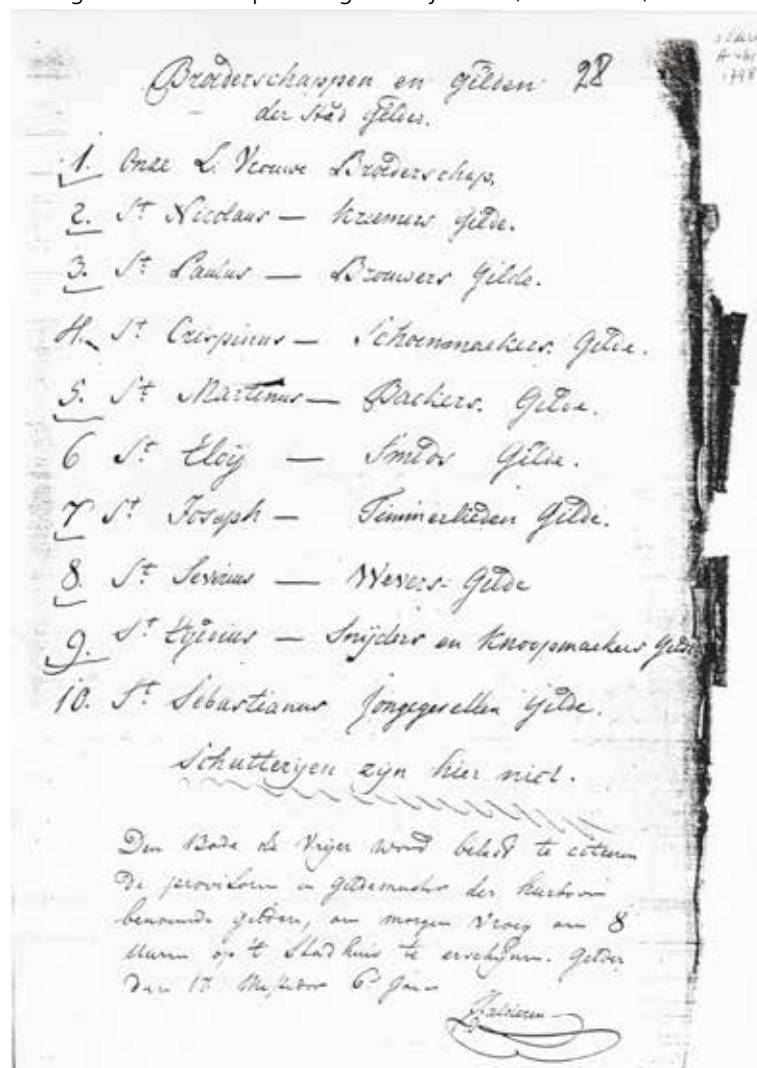 Broederschappen en Gilden 28
der Stad Gelder.
1. Onze L. Vrouwe Broederschap.
2. St Nicolaus — Kraemers Gilde.
3. St Paulus — Brouwers Gilde.
4. St Crispinus — Schoenmaekers Gilde.
5. St Martinus — Backers Gilde.
6 St Eloij — Smeds Gilde.
7 St Joseph — Timmerlieden Gilde.
8. St Severus — Wevers Gilde
9. St Egidius — Snijders en Knoopmaekers Gilde
10. St Sebastianus Jongegesellen Gilde.
Schutteryen zyn hier niet.
Den Bode de Vrijer word belast te citeeren
de provisoren en Gildemeesters der hierboven
benoemde gilden, om morgen vroeg om 8
uuren op 't Stadhuis te erscheynen. Gelder
den 17 Messidor 6e Jaer